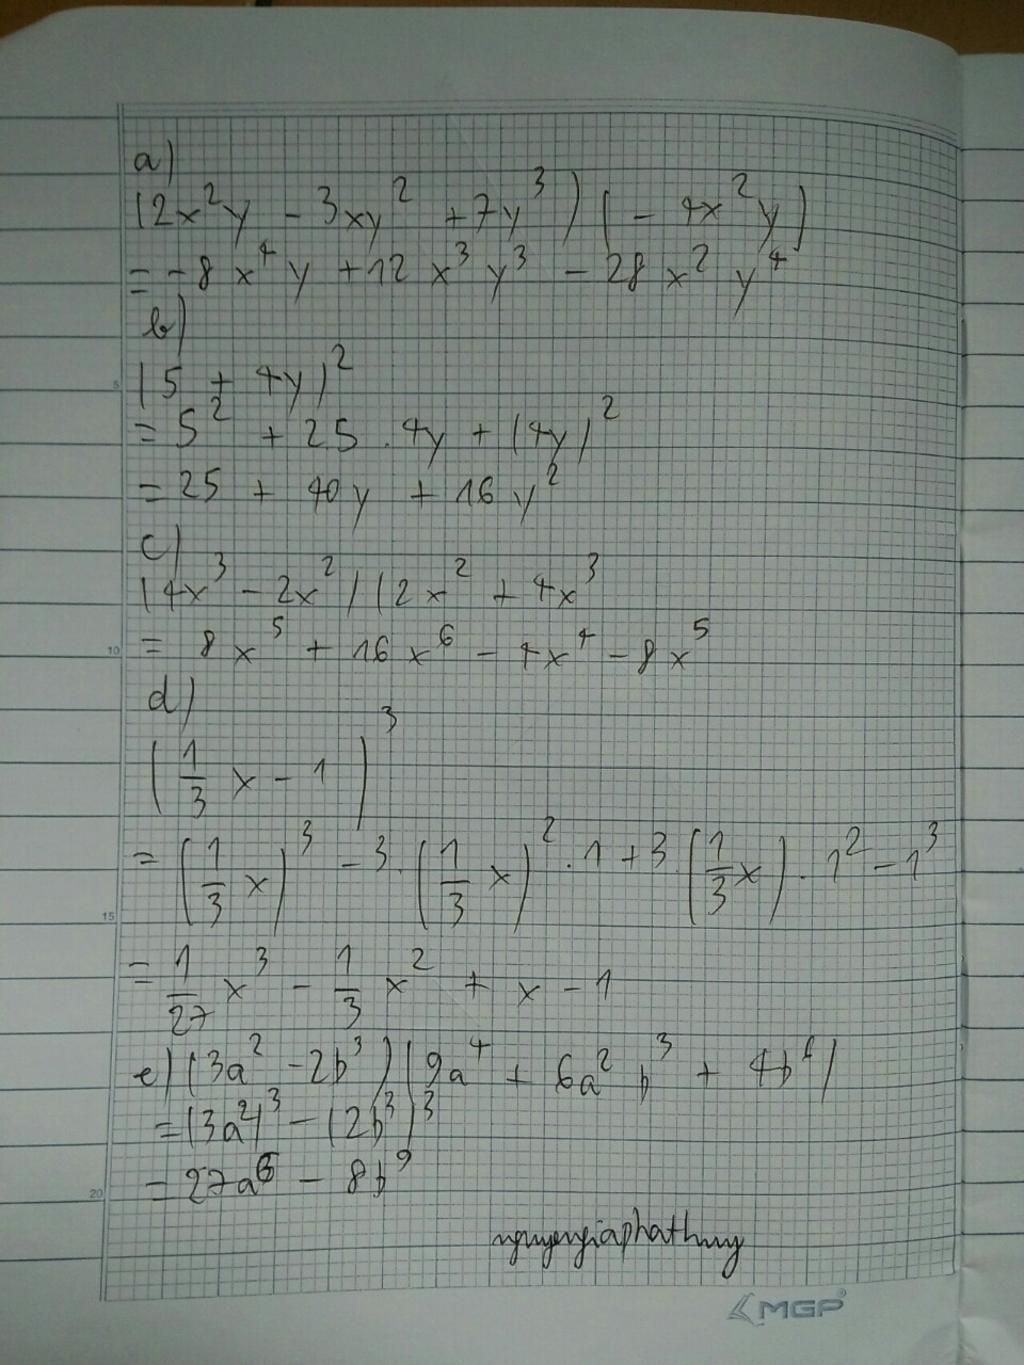 a)
(2x²y - 3xy² + 7y³)(- 4x²y)
= -8x⁴y + 12x³y³ - 28x²y⁴
b)
(5 + 4y)²
5
= 5² + 2.5.4y + (4y)²
= 25 + 40y + 16y²
c)
(4x³ - 2x²)(2x² + 4x³
= 8x⁵ + 16x⁶ - 4x⁴ - 8x⁵
10
d)
(1/3 x - 1)³
= (1/3 x)³ - 3.(1/3 x)².1 + 3.(1/3 x).1² - 1³
15
= 1/27 x³ - 1/3 x² + x - 1
e) (3a² - 2b³)(9a⁴ + 6a²b³ + 4b⁶)
= (3a²)³ - (2b³)³
= 27a⁶ - 8b⁹
20
nguyengiaphathuy
MGP®